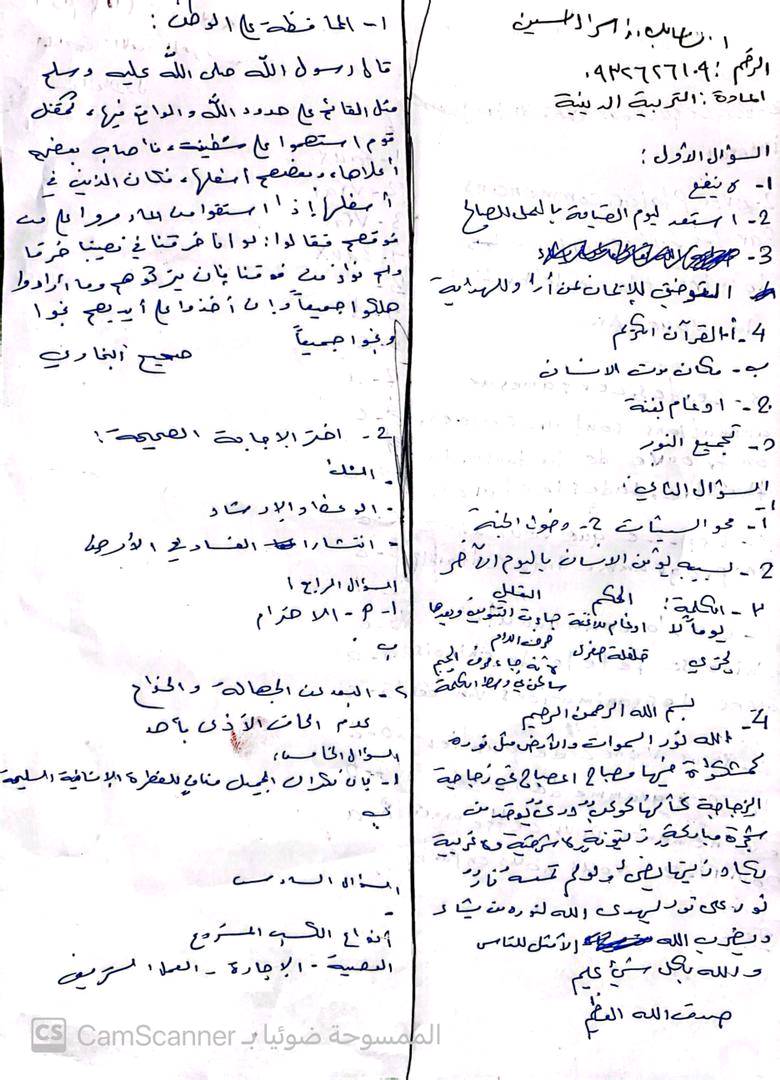 الرقم: ٠٩٣٢٦٢٦١٠٩
المادة: التربية الدينية
السؤال الأول:
1- لا ينفع
2- استعد ليوم القيامة بالعمل الصالح
3-
لمن أراد الهداية
4- أ- القرآن الكريم
ب- مكان موت الانسان
ج- ادغام بغنة
د- تجميع النور
السؤال الثاني:
1- محو السيئات 2- دخول الجنة
2- لسببه يؤمن الانسان باليوم الآخر
٣- الكلمة: الحكم التعليل
يوماً لا ادغام بلا غنة جاءت التنوين وبعدها حرف اللام
يجزي قلقلة صغرى لأنه جاء حرف الجيم
ساكن في وسط الكلمة
4- بسم الله الرحمن الرحيم
الله نور السموات والأرض مثل نوره
كمشكاة فيها مصباح المصباح في زجاجة
الزجاجة كأنها كوكب دري يوقد من
شجرة مباركة زيتونة لا شرقية ولا غربية
يكاد زيتها يضيء ولو لم تمسه نار
نور على نور يهدي الله لنوره من يشاء
ويضرب الله الأمثل للناس
والله بكل شيء عليم
صدق الله العظيم
1- المحافظة على الوطن:
قال رسول الله صلى الله عليه وسلم
مثل القائم على حدود الله والواقع فيها، كمثل
قوم استهموا على سفينة، فأصاب بعضهم
أعلاها، وبعضهم أسفلها، فكان الذين في
أسفلها إذا استقوا من الماء مروا على من
فوقهم فقالوا: لو أنا خرقنا في نصيبنا خرقا
ولم نؤذ من فوقنا فإن يتركوهم وما أرادوا
هلكوا جميعاً وإن أخذوا على أيديهم نجوا
ونجوا جميعاً
صحيح البخاري
2- اختر الاجابة الصحيحة:
- الوعظ والإرشاد
- انتشار الفساد في الأرض
السؤال الرابع:
1- P - الاحترام
ب
٢- البعد عن الجهالة و
عدم الحاق الأذى بأحد
السؤال الخامس:
1- بأن نكران الجميل مناف للفطرة الإنسانية السليمة
ب
السؤال السادس
-
أنواع الكسب المشروع
الوصية - الإجارة - العمل الشريف
CS CamScanner الممسوحة ضوئيا بـ